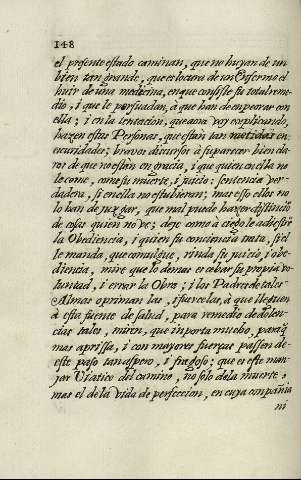 148
el presente estado caminan, que no huyan de un
bien tan grande, que es locura de un Enfermo el
huir de una medicina, en que consiste su total reme-
dio, i que le persuadan, à que han de enpeorar con
ella; i en la tentacion, que aora voy explicando,
hazen estas Personas, que estàn tan metidas en
escuridades; bravos discursos à su parecer bien cla-
ros de que no estàn en gracia, i que quien en ella no
le come, come su muerte, i juicio: sentencia ver-
dadera, si en ella no estubieran; mas esso ellos no
lo han de juzgar, que mal puede hazer distincio
de cosas quien no ve; deje como à ciego le adiestre
la Obediencia, i quien su conciencia trata, si èl
le manda, que comulgue, rinda su juicio, i obe-
diencia, mire que lo demas es obar su propia vo-
luntad, i errar la Obra; i los Padres de tales
Almas opriman las, i fuercelas, à que lleguen
à esta fuente de salud, para remedio de dolen-
cias tales, miren, que inporta mucho, paraq̃
mas aprissa, i con mayores fuerças passen de
este paso tan aspero, i fragoso; que es este man-
jar Viatico del camino, no solo de la muerte,
mas el de la vida de perfeccion, en cuya compañia
ni